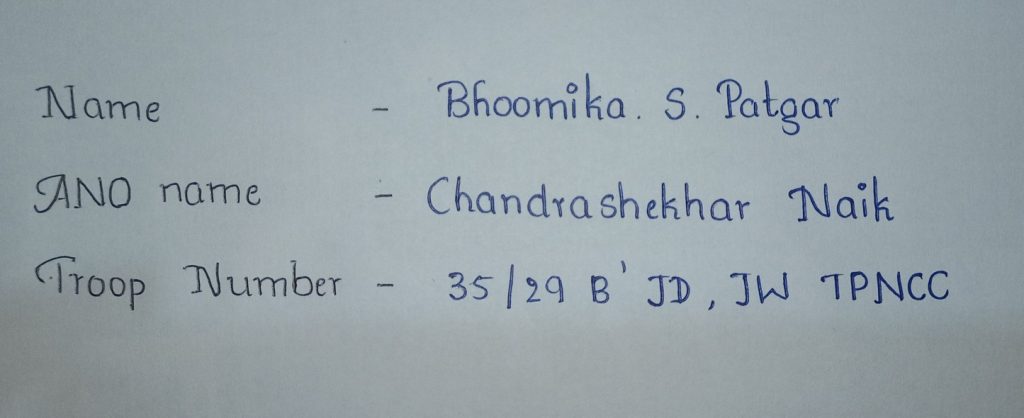 Name - Bhoomika. S. Patgar
ANO name - Chandrashekhar Naik
Troop Number - 35/29 B' JD, JW TPNCC